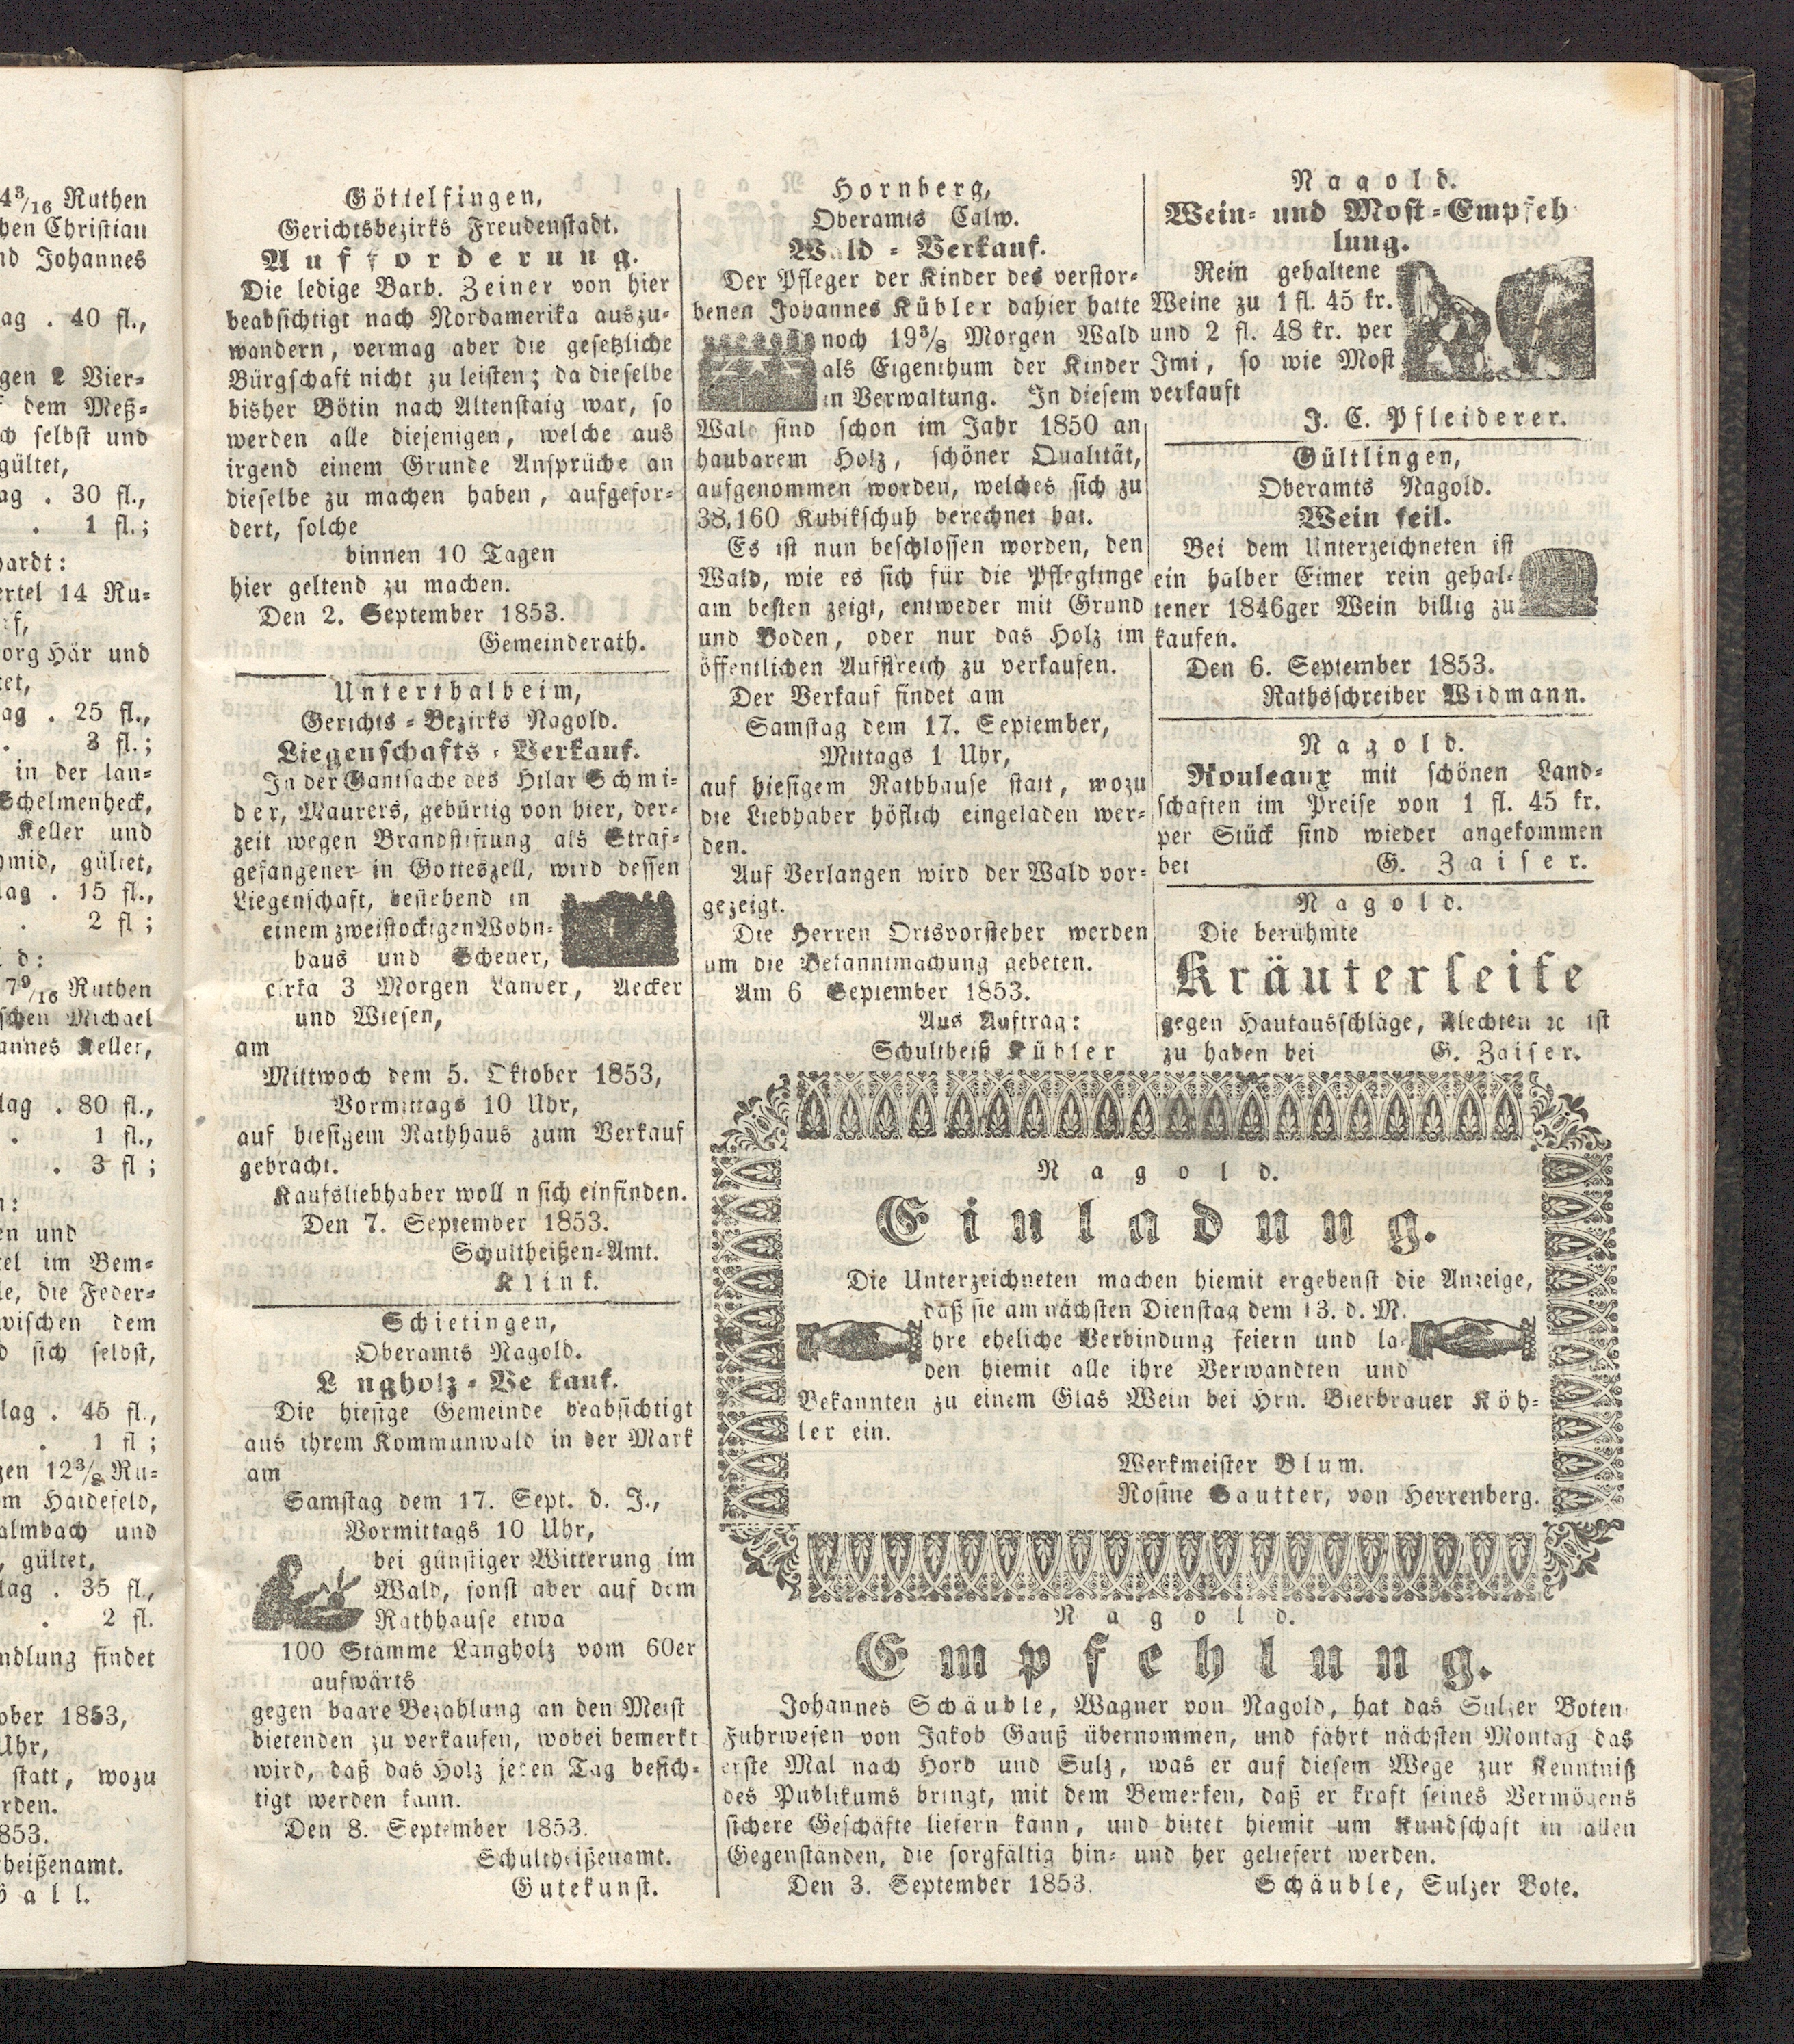 4³/₁₆ Ruthen
hen Christian
nd Johannes
ag . 40 fl.,
gen 2 Vier-
dem Meß-
ch selbst und
gültet,
ag . 30 fl.,
. 1 fl.;
hardt:
ertel 14 Ru-
org Här und
tet,
ag . 25 fl.,
. 3 fl.;
in der lan-
Schelmenheck,
Keller und
hmid, gültet,
lag . 15 fl.,
. 2 fl ;
d:
7⁹/₁₆ Ruthen
schen Michael
annes Keller,
lag . 80 fl.,
. 1 fl.,
. 3 fl ;
n:
en und
tel im Bem-
le, die Feder-
wischen dem
d sich selbst,
lag . 45 fl.,
. 1 fl ;
gen 12³/₈ Ru-
m Haidefeld,
almbach und
, gültet,
lag . 35 fl.,
. 2 fl.
ndlung findet
ober 1853,
Uhr,
statt, wozu
rden.
853.
heißenamt.
all.
Göttelfingen,
Gerichtsbezirks Freudenstadt.
Aufforderung.
Die ledige Barb. Zeiner von hier
beabsichtigt nach Nordamerika auszu-
wandern, vermag aber die gesetzliche
Bürgschaft nicht zu leisten; da dieselbe
bisher Bötin nach Altenstaig war, so
werden alle diejenigen, welche aus
irgend einem Grunde Ansprüche an
dieselbe zu machen haben, aufgefor-
dert, solche
binnen 10 Tagen
hier geltend zu machen.
Den 2. September 1853.
Gemeinderath.
Unterthalheim,
Gerichts-Bezirks Nagold.
Liegenschafts-Verkauf.
In der Gantsache des Hilar Schmi-
der, Maurers, gebürtig von hier, der-
zeit wegen Brandstiftung als Straf-
gefangener in Gotteszell, wird dessen
Liegenschaft, bestehend in
einem zweistockigen Wohn-
haus und Scheuer,
cirka 3 Morgen Länder, Aecker
und Wiesen,
am
Mittwoch dem 5. Oktober 1853,
Vormittags 10 Uhr,
auf hiesigem Rathhaus zum Verkauf
gebracht.
Kaufsliebhaber woll n sich einfinden.
Den 7. September 1853.
Schultheißen-Amt.
Klink.
Schietingen,
Oberamts Nagold.
L ngholz-Ve kauf.
Die hiesige Gemeinde beabsichtigt
aus ihrem Kommunwald in der Mark
am
Samstag dem 17. Sept. d. J.,
Vormittags 10 Uhr,
bei günstiger Witterung im
Wald, sonst aber auf dem
Rathhause etwa
100 Stämme Langholz vom 60er
aufwärts
gegen baare Bezahlung an den Meist
bietenden zu verkaufen, wobei bemerkt
wird, daß das Holz jeden Tag besich-
tigt werden kann.
Den 8. September 1853.
Schultheißenamt.
Gutekunst.
Hornberg,
Oberamts Calw.
W ld-Verkauf.
Der Pfleger der Kinder des verstor-
benen Johannes Kübler dahier hatte
noch 19³/₈ Morgen Wald
als Eigenthum der Kinder
in Verwaltung. In diesem
Wald sind schon im Jahr 1850 an
haubarem Holz, schöner Qualität,
aufgenommen worden, welches sich zu
38,160 Kubikschuh berechnet hat.
Es ist nun beschlossen worden, den
Wald, wie es sich für die Pfleglinge
am besten zeigt, entweder mit Grund
und Boden, oder nur das Holz im
öffentlichen Aufstreich zu verkaufen.
Der Verkauf findet am
Samstag dem 17. September,
Mittags 1 Uhr,
auf hiesigem Rathhause statt, wozu
die Liebhaber höflich eingeladen wer-
den.
Auf Verlangen wird der Wald vor-
gezeigt.
Die Herren Ortsvorsteher werden
um die Bekanntmachung gebeten.
Am 6 September 1853.
Aus Auftrag:
Schultheiß Kübler
Nagold.
Wein- und Most-Empfeh
lung.
Rein gehaltene
Weine zu 1 fl. 45 kr.
und 2 fl. 48 kr. per
Imi, so wie Most
verkauft
J. C. Pfleiderer.
Gültlingen,
Oberamts Nagold.
Wein feil.
Bei dem Unterzeichneten ist
ein halber Eimer rein gehal-
tener 1846ger Wein billig zu
kaufen.
Den 6. September 1853.
Rathsschreiber Widmann.
Nagold.
Rouleaux mit schönen Land-
schaften im Preise von 1 fl. 45 kr.
per Stück sind wieder angekommen
bei G. Zaiser.
Nagold.
Die berühmte
Kräuterseife
gegen Hautausschläge, Flechten ꝛc ist
zu haben bei G. Zaiser.
Nagold.
Einladung.
Die Unterzeichneten machen hiemit ergebenst die Anzeige,
daß sie am nächsten Dienstag dem 13. d. M.
hre eheliche Verbindung feiern und la-
den hiemit alle ihre Verwandten und
Bekannten zu einem Glas Wein bei Hrn. Bierbrauer Köh-
ler ein.
Werkmeister Blum.
Rosine Sautter, von Herrenberg.
Nagold.
Empfehlung.
Johannes Schäuble, Wagner von Nagold, hat das Sulzer Boten-
Fuhrwesen von Jakob Gauß übernommen, und fährt nächsten Montag das
erste Mal nach Hord und Sulz, was er auf diesem Wege zur Kenntniß
des Publikums bringt, mit dem Bemerken, daß er kraft seines Vermögens
sichere Geschäfte liefern kann, und bittet hiemit um Kundschaft in allen
Gegenständen, die sorgfältig hin- und her geliefert werden.
Den 3. September 1853.
Schäuble, Sulzer Bote.